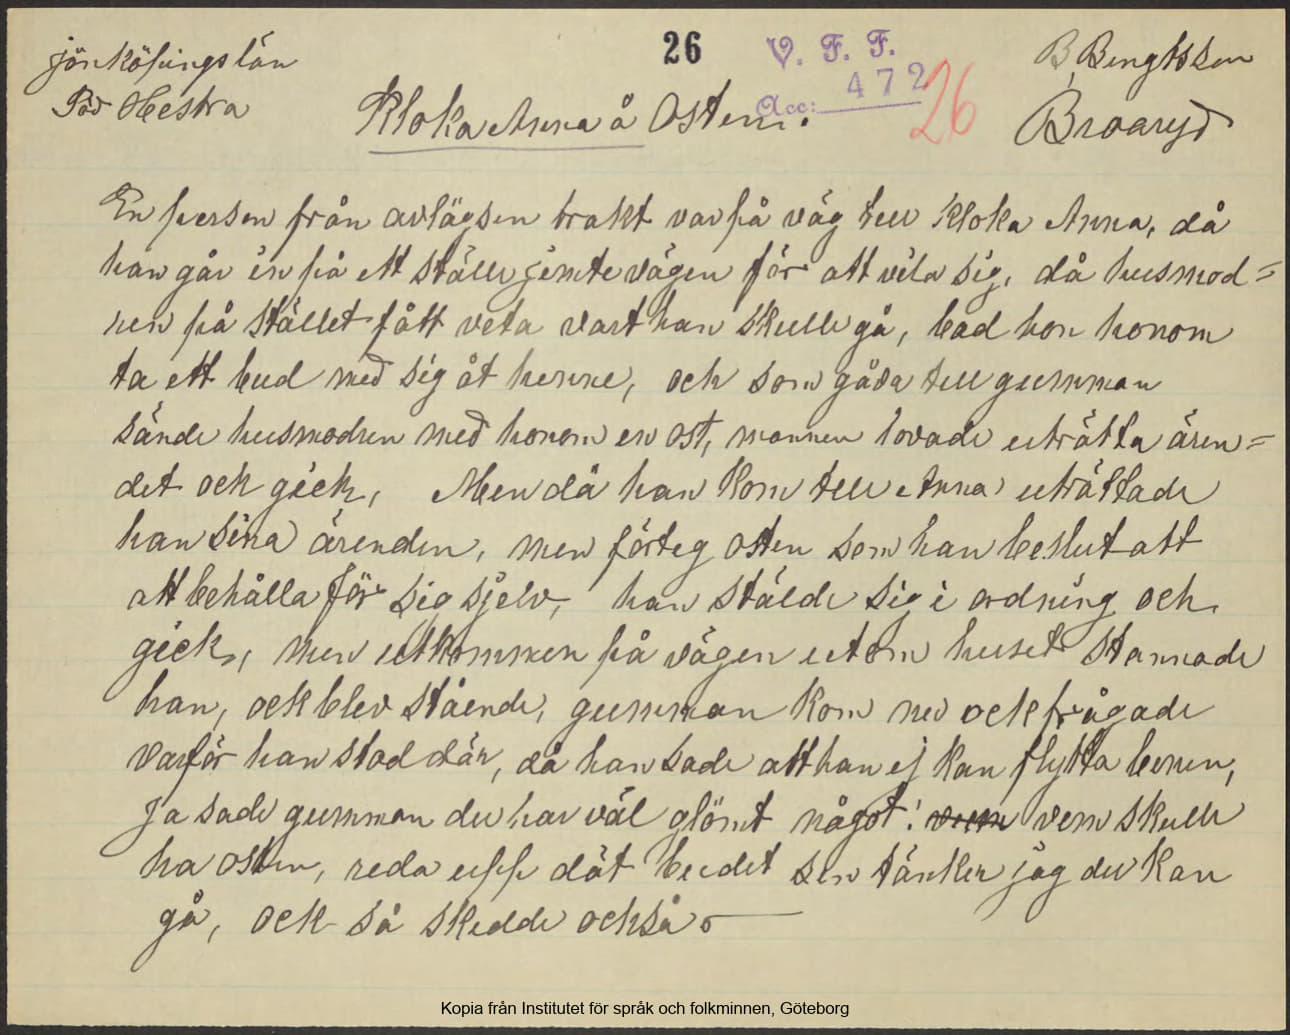 Jönköpings län
26
V. F. F.
B. Bengtsson
Acc: 472
26
Södra Hestra
Kloka Anna å Osten.
Broaryd
En person från avlägsen trakt var på väg till Kloka Anna, då
han går in på ett ställe jemte vägen för att vila sig, då husmod=
ren på stället fått veta vart han skulle gå, bad hon honom
ta ett bud med sig åt henne, och som gåva till gumman
sände husmodren med honom en ost, mannen lovade uträtta ären=
det och gick, Men då han kom till Anna uträttade
han sina ärenden, men förteg osten som han beslut att
att behålla för sig sjelv, han stälde sig i ordning och
gick, men utkommen på vägen utom huset stannade
han, ock blev stående, gumman kom ned ock frågade
varför han stod där, då han sade att han ej kan flytta benen,
Ja sade gumman du har väl glömt något! vem skulle
ha osten, reda upp dät budet sen tänker jag du kan
gå, ock så skedde också.
Kopia från Institutet för språk och folkminnen, Göteborg